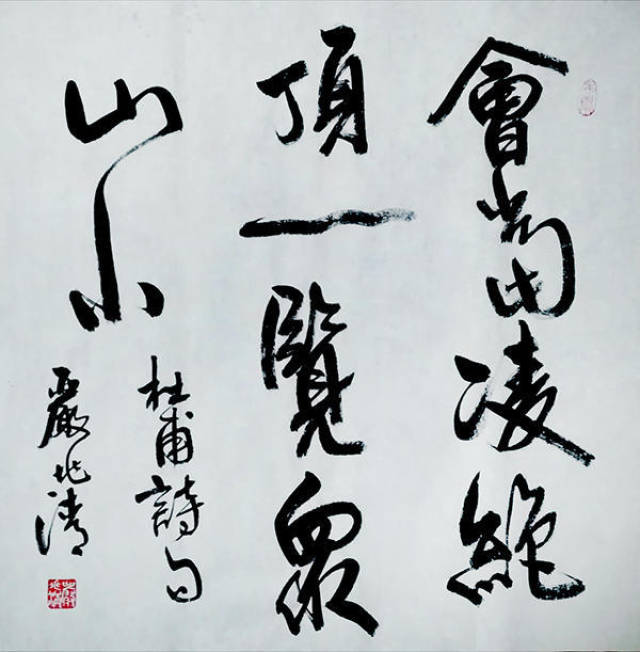 會當凌絕
頂一覽眾
山小
杜甫詩句
嚴清